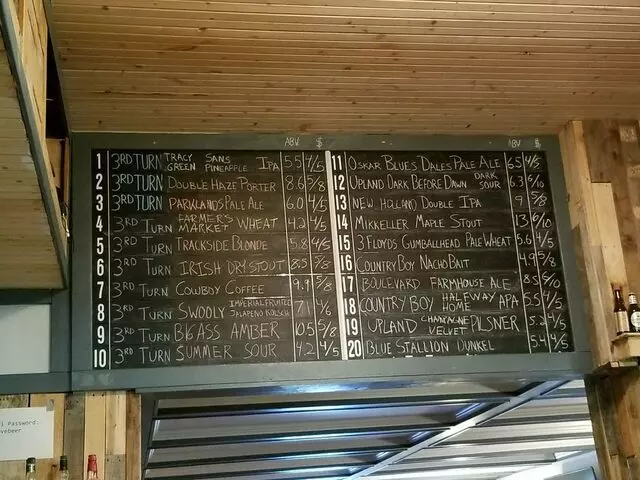 ABV $
1 3RD TURN TRACY SANS GREEN PINEAPPLE IPA 5.5 4/5
2 3RD TURN DOUBLE HAZE PORTER 8.6 5/8
3 3RD TURN PARKLANDS PALE ALE 6.0 4/5
4 3RD TURN FARMER'S MARKET WHEAT 4.2 4/5
5 3RD TURN TRACKSIDE BLONDE 5.8 4/5
6 3RD TURN IRISH DRY STOUT 8.5 5/8
7 3RD TURN COWBOY COFFEE 9.9 5/8
8 3RD TURN SWOOLY IMPERIAL FRUITED JALAPENO KOLSCH 7 4/6
9 3RD TURN BIGASS AMBER 10.5 5/8
10 3RD TURN SUMMER SOUR 4.2 4/5
ABV $
11 OSKAR BLUES DALES PALE ALE 6.5 4/5
12 UPLAND DARK BEFORE DAWN DARK SOUR 6.3 6/10
13 NEW HOLLAND DOUBLE IPA 9 5/8
14 MIKKELLER MAPLE STOUT 13 6/10
15 3 FLOYDS GUMBALLHEAD PALE WHEAT 5.6 4/5
16 COUNTRY BOY NACHO BAIT 4.9 5/8
17 BOULEVARD FARMHOUSE ALE 8.5 5/10
18 COUNTRY BOY HALFWAY HOME APA 5.5 4/5
19 UPLAND CHAMPAGNE VELVET PILSNER 5.2 4/5
20 BLUE STALLION DUNKEL 5.4 4/5
Password: